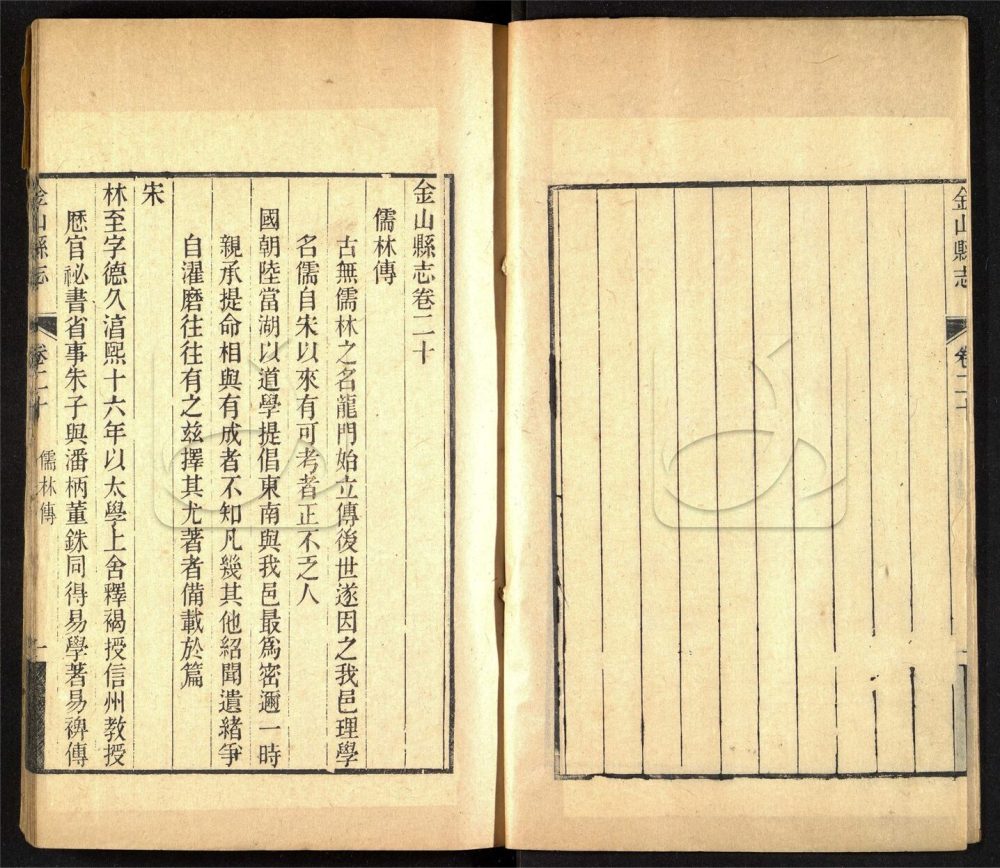 金山縣志
卷二十
金山縣志卷二十
儒林傳
古無儒林之名龍門始立傳後世遂因之我邑理學
名儒自宋以來有可考者正不乏人
國朝陸當湖以道學提倡東南與我邑最爲密邇一時
親承提命相與有成者不知凡幾其他紹聞遺緒爭
自濯磨往往有之兹擇其尤著者備載於篇
宋
林至字德久湻熙十六年以太學上舍釋褐授信州教授
厯官祕書省事朱子與潘柄董銖同得易學著易裨傳
金山縣志
卷二十
儒林傳
一